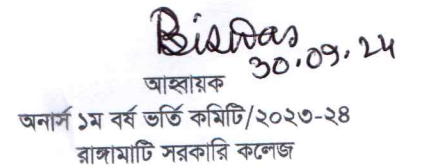 Biswas
30.09.24
আহ্বায়ক
অনার্স ১ম বর্ষ ভর্তি কমিটি/২০২৩-২৪
রাঙ্গামাটি সরকারি কলেজ